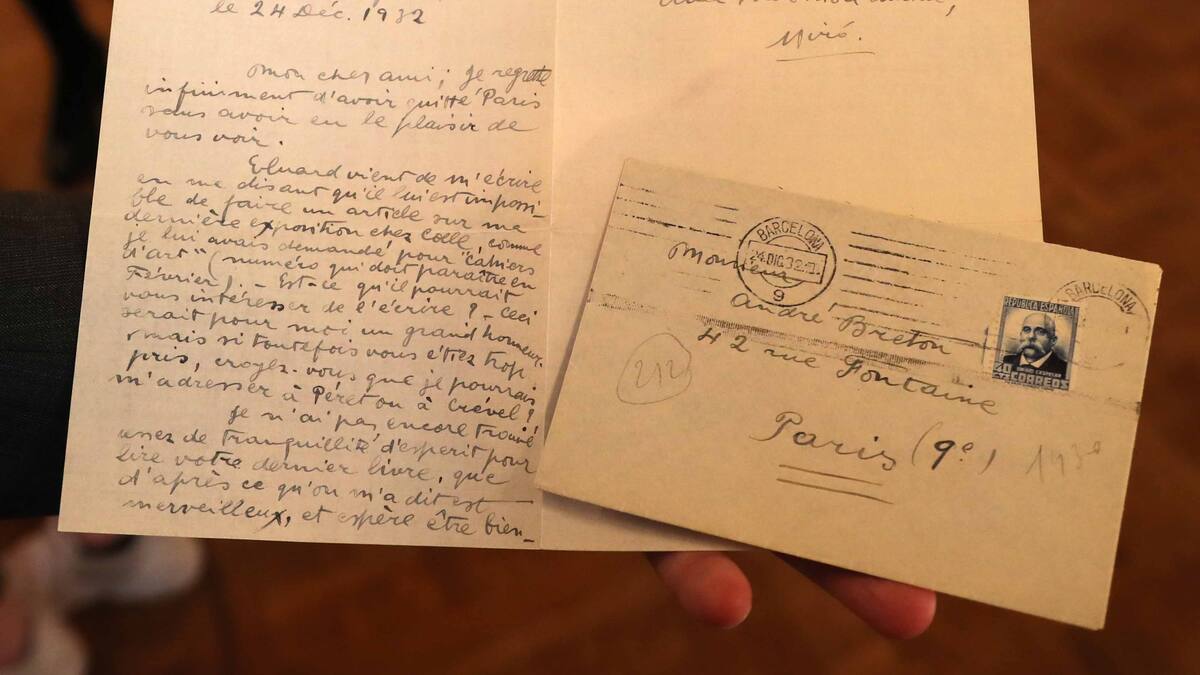 le 24 Déc. 1932
Mon cher ami; je regrette
infiniment d'avoir quitté Paris
sans avoir eu le plaisir de
vous voir.
Eluard vient de m'écrire
en me disant qu'il lui est impossi-
ble de faire un article sur ma
dernière exposition chez Colle, comme
je lui avais demandé pour "Cahiers
d'art" (numéro qui doit paraître en
Février). - Est-ce qu'il pourrait
vous intéresser de l'écrire? - Ceci
serait pour moi un grand honneur.
mais si toutefois vous étiez trop
pris, croyez-vous que je pourrais
m'adresser à Péret ou à Crével?
Je n'ai pas encore trouvé
assez de tranquillité d'esperit pour
lire votre dernier livre, que
d'après ce qu'on m'a dit est
merveilleux, et espère être bien-
Miró.
BARCELONA
24 DIC 32
9
Monsieur
André Breton
42 rue Fontaine
Paris (9e)
212
193
REPUBLICA ESPAÑOLA
EMILIO CASTELAR
40 CTS CORREOS
BARCELONA